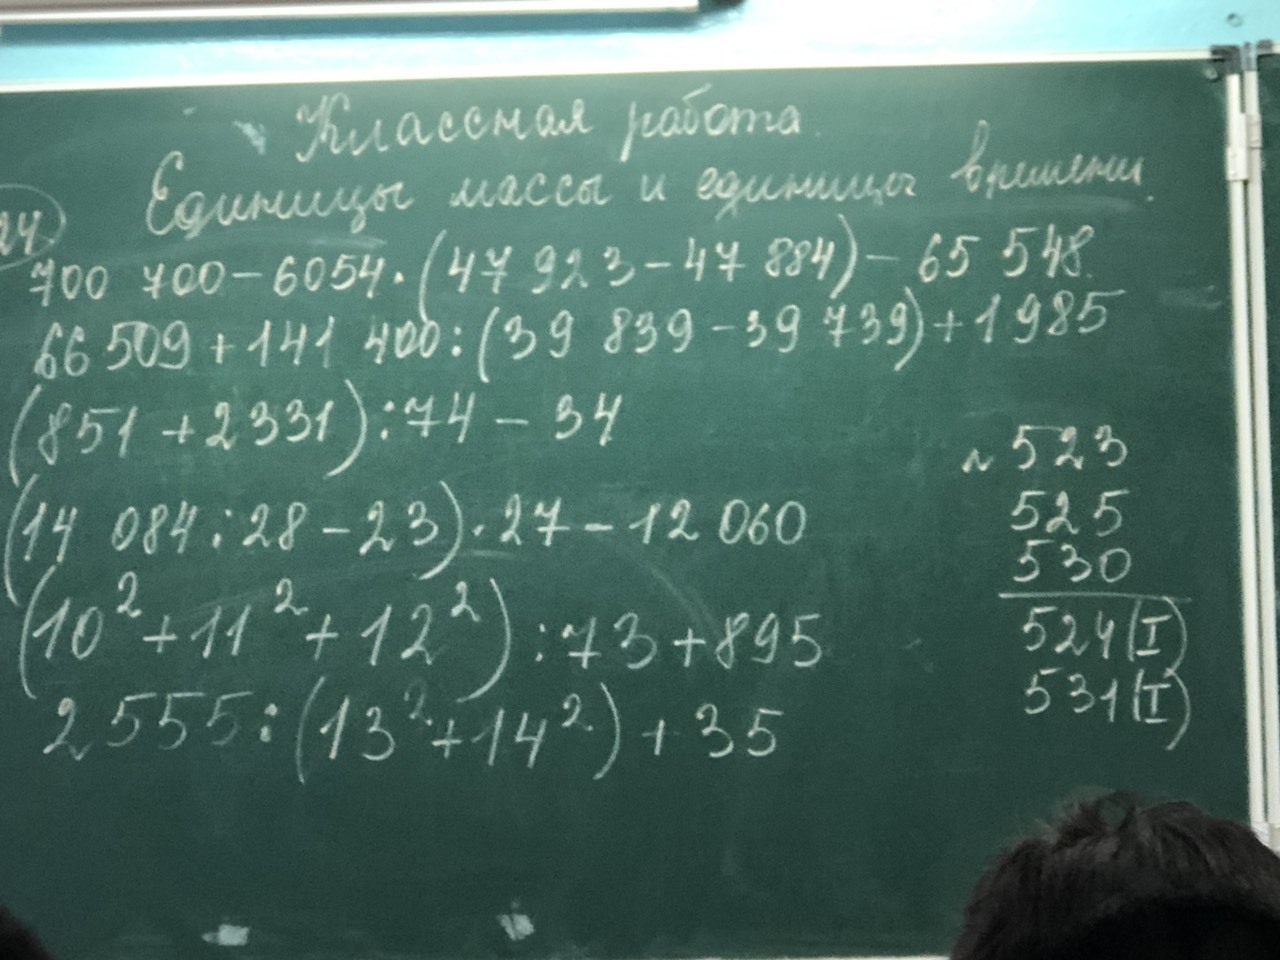 Классная работа.
Единицы массы и единицы времени.
24
700 700 - 6054 · (47 923 - 47 884) - 65 548.
66 509 + 141 400 : (39 839 - 39 739) + 1985
(851 + 2331) : 74 - 34
(14 084 : 28 - 23) · 27 - 12 060
(10² + 11² + 12²) : 73 + 895
2 555 : (13² + 14²) + 35
~ 523
525
530
524 (I)
531 (I)